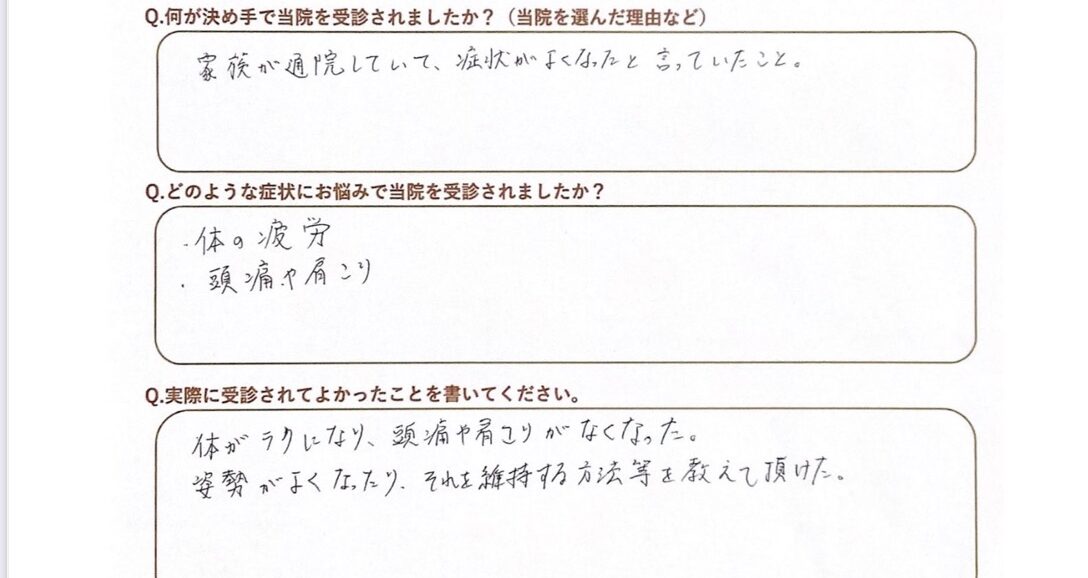 Q.何が決め手で当院を受診されましたか？（当院を選んだ理由など）
家族が通院していて、症状がよくなったと言っていたこと。
Q.どのような症状にお悩みで当院を受診されましたか？
・体の疲労
・頭痛や肩こり
Q.実際に受診されてよかったことを書いてください。
体がラクになり、頭痛や肩こりがなくなった。
姿勢がよくなったり、それを維持する方法等を教えて頂けた。